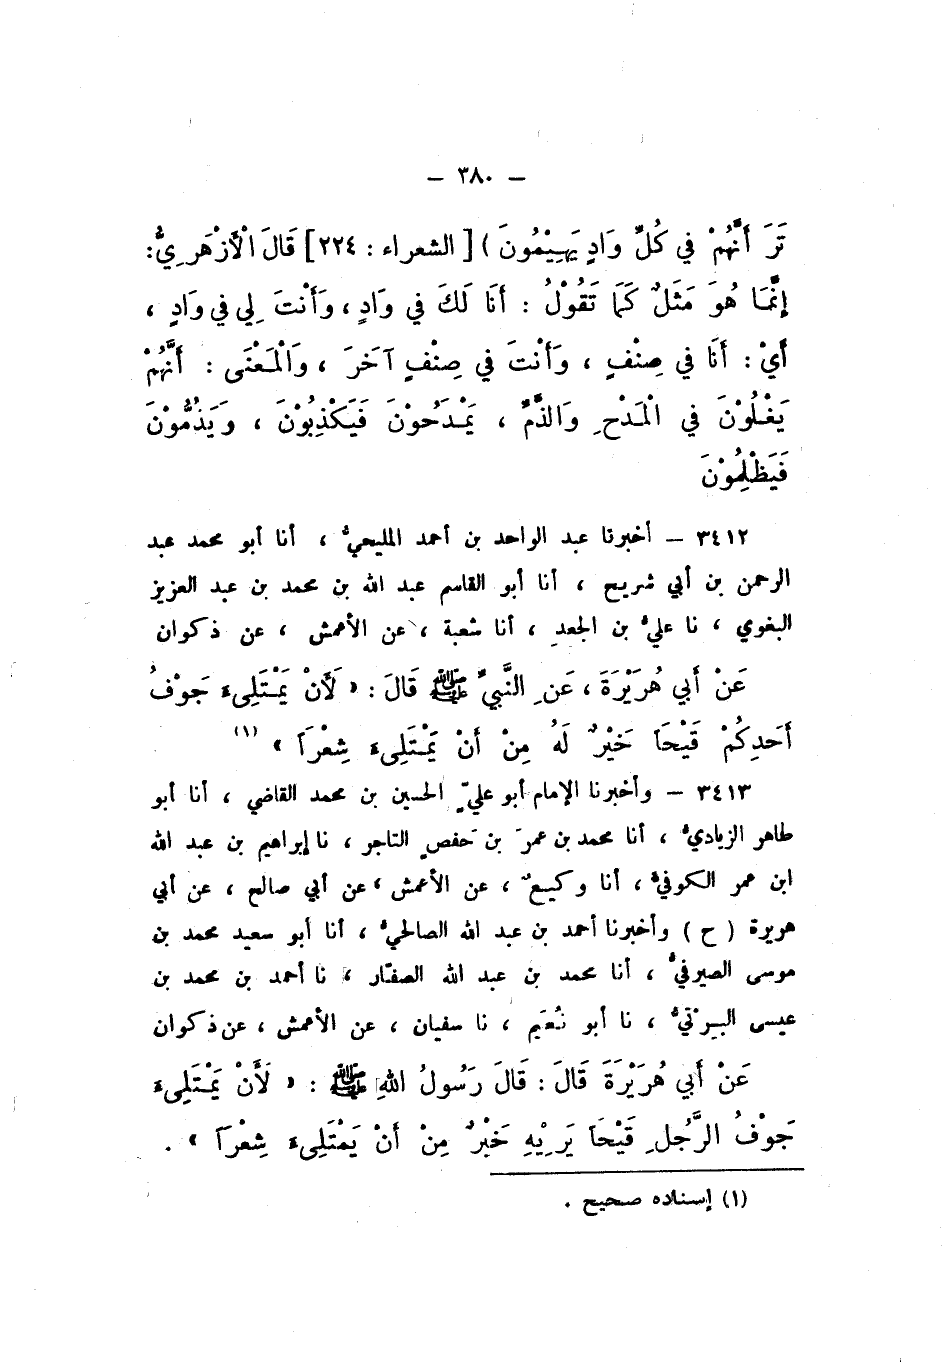 – ٣٨٠ –
تَرَ أَنَّهُمْ فِي كُلِّ وَادٍ يَهِيْمُونَ ) [ الشعراء : ٢٢٤ ] قَالَ الْأَزْهَرِيُّ :
إِنَّمَا هُوَ مَثَلٌ كَمَا تَقُوْلُ : أَنَا لَكَ فِي وَادٍ ، وَأَنْتَ لِي فِي وَادٍ ،
أَيْ : أَنَا فِي صِنْفٍ ، وَأَنْتَ فِي صِنْفٍ آخَرَ ، وَالْمَعْنَى : أَنَّهُمْ
يَغْلُوْنَ فِي الْمَدْحِ وَالذَّمِّ ، يَمْدَحُوْنَ فَيَكْذِبُوْنَ ، وَيَذُمُّوْنَ
فَيَظْلِمُوْنَ
٣٤١٢ – أخبرنا عبد الواحد بن أحمد المليحيُّ ، أنا أبو محمد عبد
الرحمن بن أبي شريح ، أنا أبو القاسم عبد الله بن محمد بن عبد العزيز
البغوي ، نا عليُّ بن الجعدِ ، أنا شعبة ، عن الأعمش ، عن ذكوان
عَنْ أَبِي هُرَيْرَةَ ، عَنِ النَّبِيِّ ﷺ قَالَ : « لَأَنْ يَمْتَلِىءَ جَوْفُ
أَحَدِكُمْ قَيْحَاً خَيْرٌ لَهُ مِنْ أَنْ يَمْتَلِىءَ شِعْرَاً » (١)
٣٤١٣ – وأخبرنا الإمام أبو عليٍّ الحسين بن محمد القاضي ، أنا أبو
طاهر الزياديُّ ، أنا محمد بن عمرَ بن حَفصٍ التاجر ، نا إبراهيم بن عبد الله
ابن عمر الكوفيُّ ، أنا وكيعٌ ، عن الأعمش ، عن أبي صالح ، عن أبي
هريرة ( ح ) وأخبرنا أحمد بن عبد الله الصالحيُّ ، أنا أبو سعيد محمد بن
موسى الصيرفيُّ ، أنا محمد بن عبد الله الصفّار ، نا أحمد بن محمد بن
عيسى البِرْتيُّ ، نا أبو نُعَيم ، نا سفيان ، عن الأعمش ، عن ذكوان
عَنْ أَبِي هُرَيْرَةَ قَالَ : قَالَ رَسُولُ اللهِ ﷺ : « لَأَنْ يَمْتَلِىءَ
جَوْفُ الرَّجُلِ قَيْحَاً يَرِيْهِ خَيْرٌ مِنْ أَنْ يَمْتَلِىءَ شِعْرَاً » .
(١) إسناده صحيح .